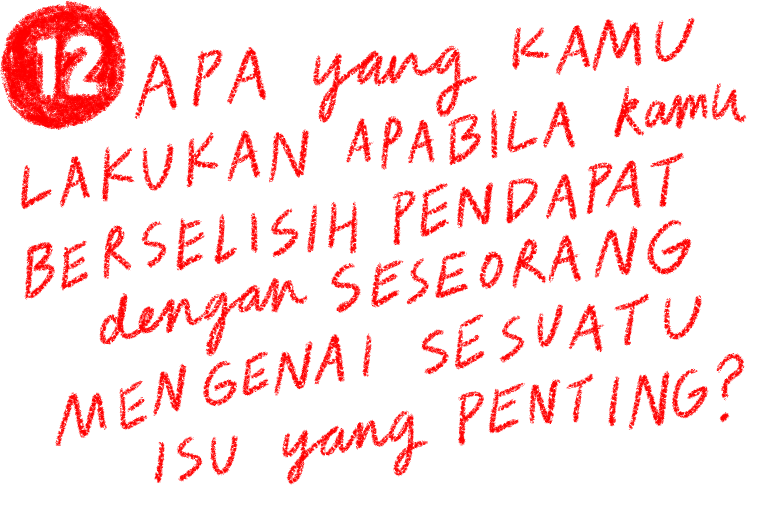 12 APA yang KAMU
LAKUKAN APABILA kamu
BERSELISIH PENDAPAT
dengan SESEORANG
MENGENAI SESUATU
ISU yang PENTING?